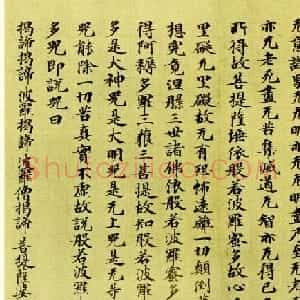 亦无老死盡无苦集滅道无智亦无得已
所得故菩提薩埵依般若波羅蜜多故心
罣礙无罣礙故无有恐怖遠離一切顛倒
想究竟涅槃三世諸佛依般若波羅蜜多
得阿耨多羅三藐三菩提故知般若波羅
多是大神咒是大明咒是无上咒是无等
咒能除一切苦真實不虛故說般若波羅
多咒即說咒曰
揭諦揭諦 波羅揭諦 波羅僧揭諦 菩提薩婆